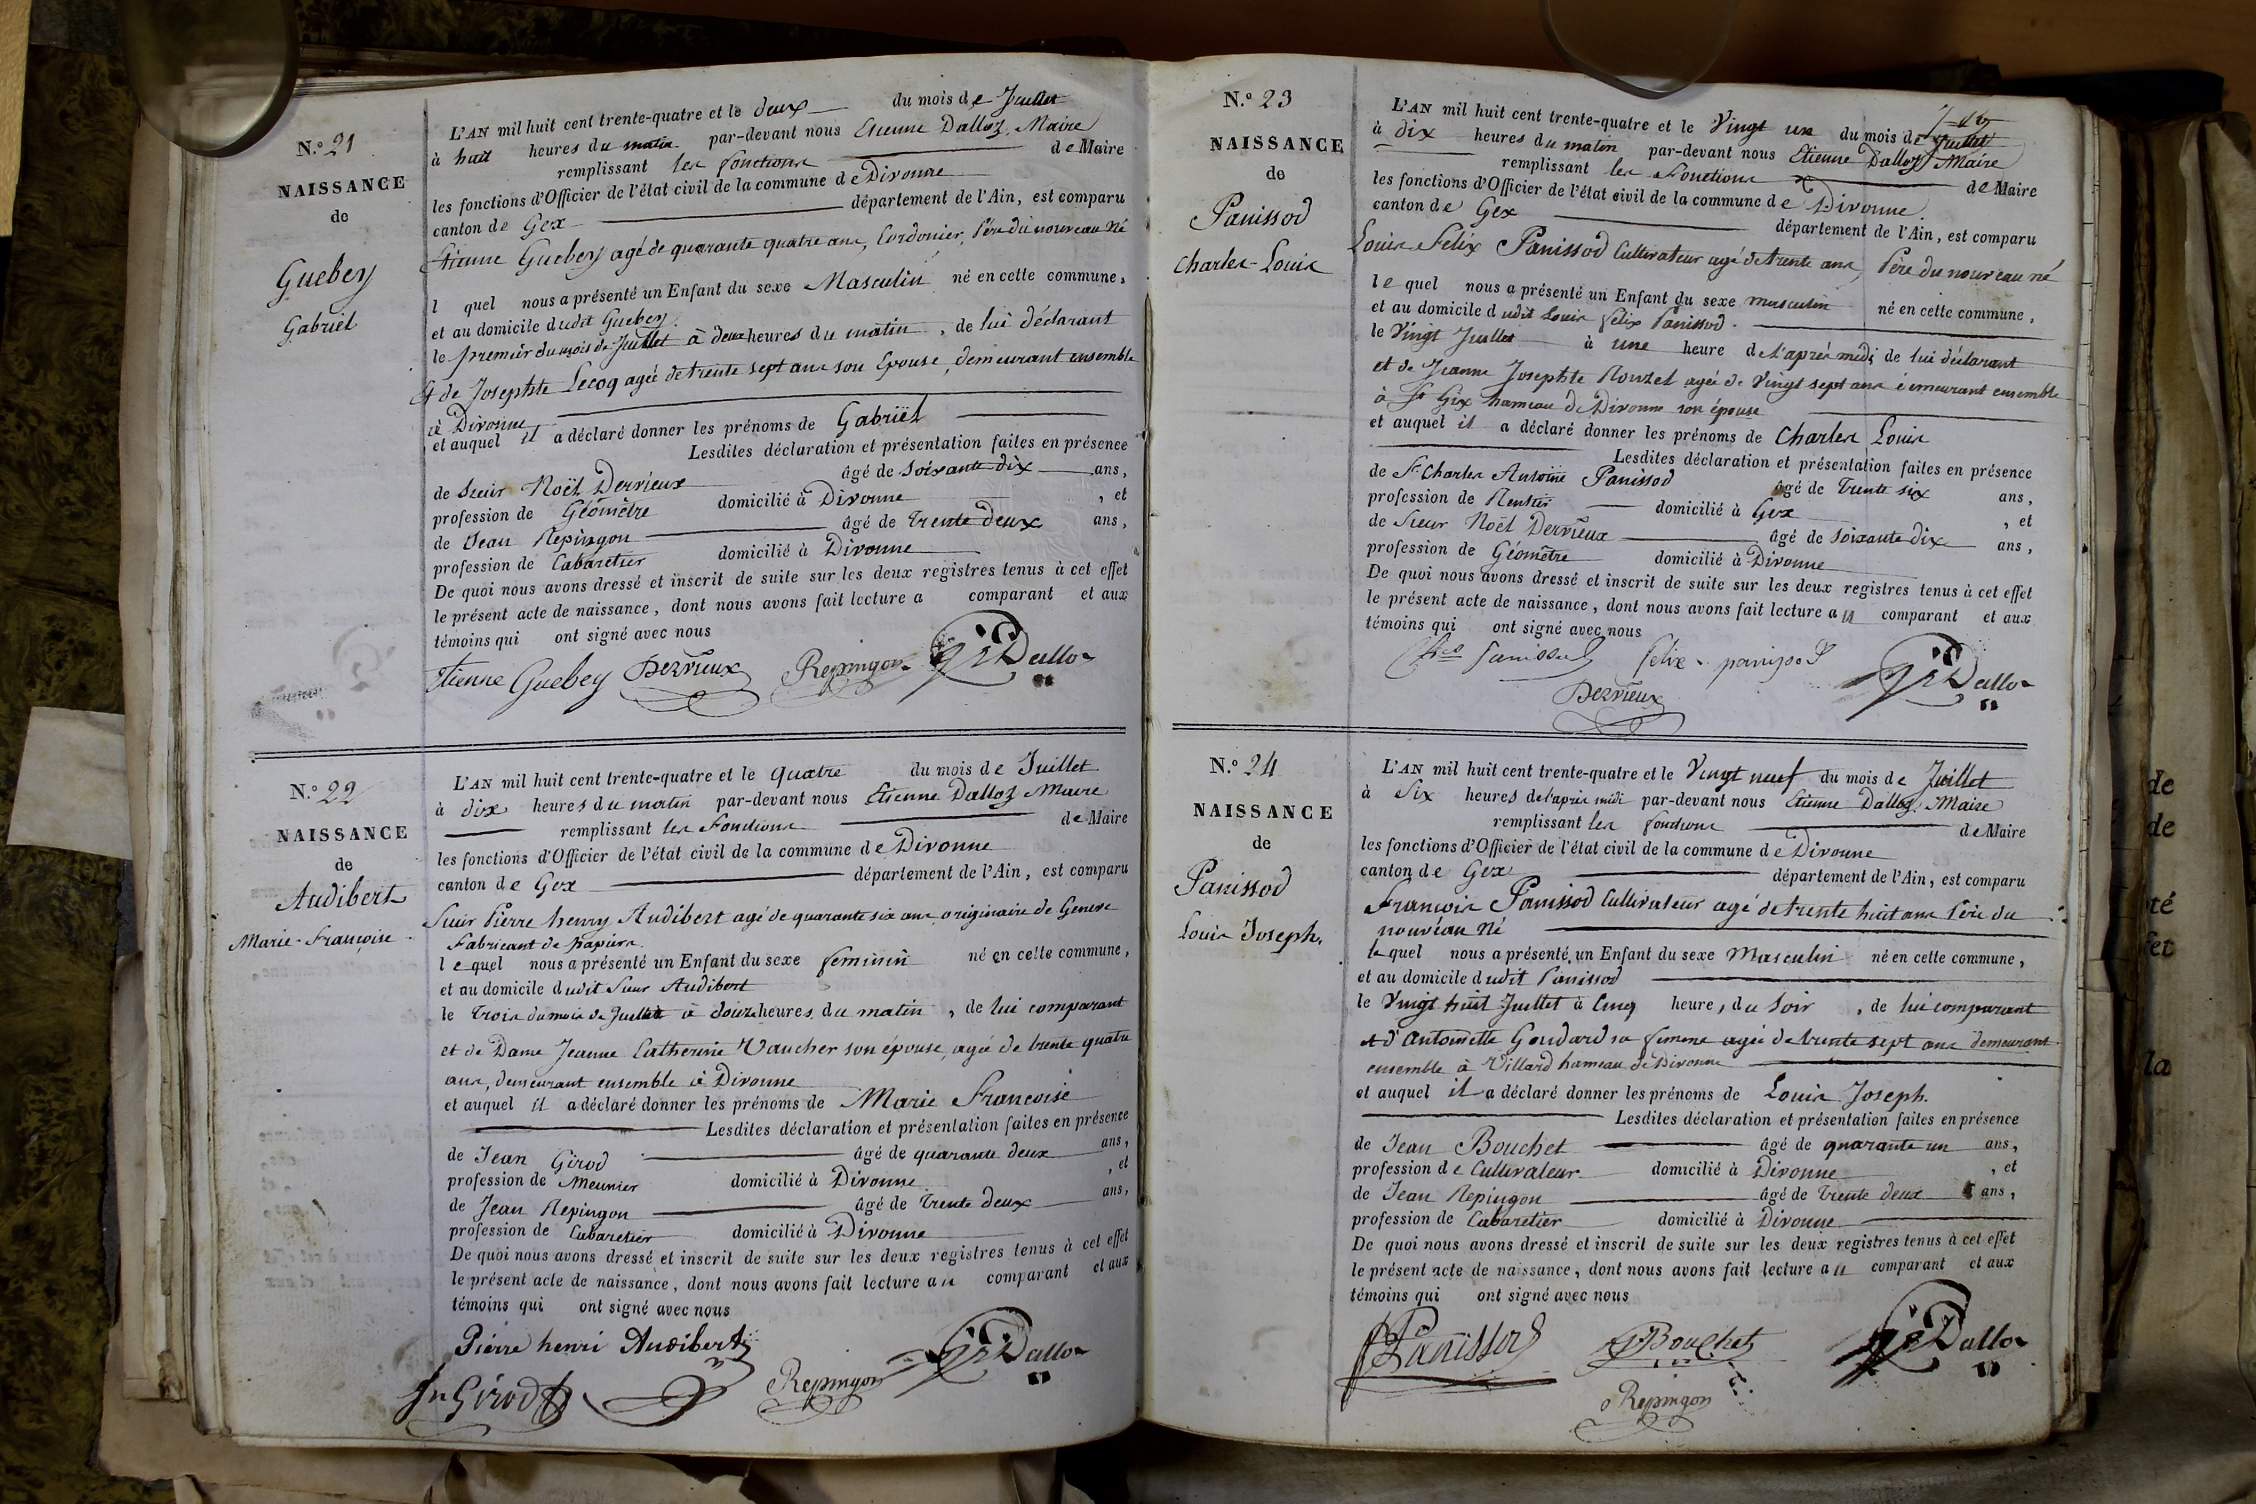 N.° 21
NAISSANCE
de
Guebey
Gabriël
L'AN mil huit cent trente-quatre et le deux du mois de Juillet
à huit heures du matin par-devant nous Etienne Dalloz, Maire
remplissant les fonctions de Maire
les fonctions d'Officier de l'état civil de la commune de Divonne
canton de Gex département de l'Ain, est comparu
Etienne Guebey agé de quarante quatre ans, Cordonier, Père du nouveau Né
l quel nous a présenté un Enfant du sexe Masculin né en cette commune,
et au domicile dudit Guebey.
le premier du mois de Juillet à deux heures du matin, de lui déclarant
Et de Josephte Lecoq agée de trente sept ans son Epouse, demeurant ensemble
à Divonne
et auquel il a déclaré donner les prénoms de Gabriël
Lesdites déclaration et présentation faites en présence
de Sieur Noël Dervieux âgé de soixante dix ans,
profession de Géomètre domicilié à Divonne, et
de Jean Repingon âgé de trente deux ans,
profession de Cabaretier domicilié à Divonne
De quoi nous avons dressé et inscrit de suite sur les deux registres tenus à cet effet
le présent acte de naissance, dont nous avons fait lecture a comparant et aux
témoins qui ont signé avec nous
Etienne Guebey Dervieux Repingon Dalloz
N.° 22
NAISSANCE
de
Audibert
Marie-Françoise
L'AN mil huit cent trente-quatre et le quatre du mois de Juillet
à dix heures du matin par-devant nous Etienne Dalloz Maire
remplissant les Fonctions de Maire
les fonctions d'Officier de l'état civil de la commune de Divonne
canton de Gex département de l'Ain, est comparu
Sieur Pierre henry Audibert agé de quarante six ans originaire de Geneve
Fabricant de papiers.
lequel nous a présenté un Enfant du sexe feminin né en cette commune,
et au domicile dudit Sieur Audibert
le trois du mois de Juillet à douze heures du matin, de lui comparant
et de Dame Jeanne Catherine Vaucher son épouse, agée de trente quatre
ans, demeurant ensemble à Divonne
et auquel il a déclaré donner les prénoms de Marie Francoise
Lesdites déclaration et présentation faites en présence
de Jean Girod âgé de quarante deux ans,
profession de Meunier domicilié à Divonne, et
de Jean Repingon âgé de trente deux ans,
profession de Cabaretier domicilié à Divonne
De quoi nous avons dressé et inscrit de suite sur les deux registres tenus à cet effet
le présent acte de naissance, dont nous avons fait lecture au comparant et aux
témoins qui ont signé avec nous
Pierre henri Audibert Dalloz
Jn Girod Repingon
N.° 23
NAISSANCE
de
Panissod
Charles-Louis
L'AN mil huit cent trente-quatre et le Vingt un du mois de Juillet
à dix heures du matin par-devant nous Etienne Dalloz Maire
remplissant les Fonctions de Maire
les fonctions d'Officier de l'état civil de la commune de Divonne
canton de Gex département de l'Ain, est comparu
Louis Félix Panissod Cultivateur agé de trente ans, Père du nouveau né
lequel nous a présenté un Enfant du sexe masculin né en cette commune,
et au domicile dudit Louis felix Panissod.
le Vingt Juillet à une heure de l'après midi de lui déclarant
et de Jeanne Josephte Rouzet agée de Vingt sept ans demeurant ensemble
à St Gix hameau de Divonne son épouse
et auquel il a déclaré donner les prénoms de Charles Louis
Lesdites déclaration et présentation faites en présence
de Sr Charles Antoine Panissod âgé de trente six ans,
profession de Rentier domicilié à Gex, et
de Sieur Noël Dervieux âgé de soixante dix ans,
profession de Géomètre domicilié à Divonne
De quoi nous avons dressé et inscrit de suite sur les deux registres tenus à cet effet
le présent acte de naissance, dont nous avons fait lecture au comparant et aux
témoins qui ont signé avec nous
Panissod felix panissod Dalloz
Dervieux
N.° 24
NAISSANCE
de
Panissod
Louis Joseph.
L'AN mil huit cent trente-quatre et le Vingt neuf du mois de Juillet
à Six heures de l'après midi par-devant nous Etienne Dalloz, Maire
remplissant les fonctions de Maire
les fonctions d'Officier de l'état civil de la commune de Divonne
canton de Gex département de l'Ain, est comparu
François Panissod Cultivateur agé de trente huit ans Père du
nouveau Né
lequel nous a présenté un Enfant du sexe Masculin né en cette commune,
et au domicile dudit Panissod
le Vingt huit Juillet à Cinq heure, du Soir, de lui comparant
et d'Antoinette Goudard sa femme agée de trente sept ans demeurant
ensemble à Villard hameau de Divonne
et auquel il a déclaré donner les prénoms de Louis Joseph.
Lesdites déclaration et présentation faites en présence
de Jean Bouchet âgé de quarante un ans,
profession de Cultivateur domicilié à Divonne, et
de Jean Repingon âgé de trente deux ans,
profession de Cabaretier domicilié à Divonne
De quoi nous avons dressé et inscrit de suite sur les deux registres tenus à cet effet
le présent acte de naissance, dont nous avons fait lecture au comparant et aux
témoins qui ont signé avec nous
Panissod Bouchet Dalloz
Repingon
de
de
té
fet
la